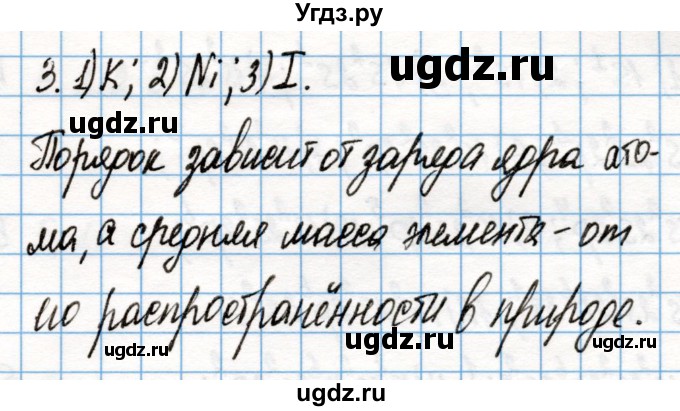 Угдз.ру
ugdz.ru
3. 1) K; 2) Ni; 3) I.
ugdz.ru
Порядок зависит от заряда ядра ато-
ugdz.ru
ма, а средняя масса элемента - от
ugdz.ru
его распространённости в природе.
ugdz.ru ugdz.ru ugdz.ru
ugdz.ru